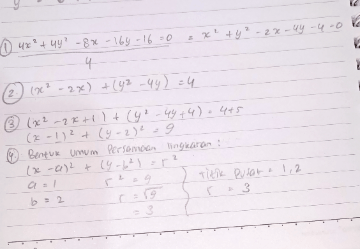 ① 4x² + 4y² - 8x - 16y - 16 = 0 = x² + y² - 2x - 4y - 4 = 0
4
② (x² - 2x) + (y² - 4y) = 4
③ (x² - 2x + 1) + (y² - 4y + 4) = 4+5
(x - 1)² + (y - 2)² = 9
4. Bentuk Umum Persamaan lingkaran :
(x - a)² + (y - b²) = r²
a = 1 r² = 9 } titik Pusat = 1,2
b = 2 r = √9 r = 3
= 3